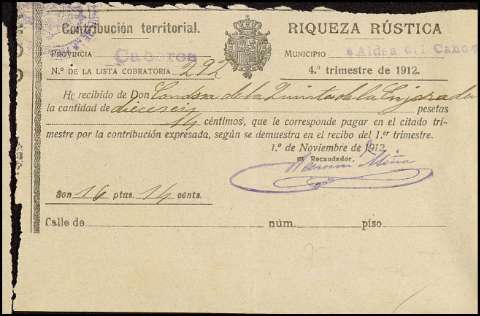 Contribución territorial. RIQUEZA RÚSTICA
PROVINCIA Cáceres MUNICIPIO Aldea del Cano
N.º DE LA LISTA COBRATORIA 292 4.º trimestre de 1912.
He recibido de Don de la Quinta de la Enjarada
la cantidad de dieciseis pesetas
14 céntimos, que le corresponde pagar en el citado tri-
mestre por la contribución expresada, según se demuestra en el recibo del 1.er trimestre.
1.º de Noviembre de 1912.
El Recaudador,
Son 16 ptas. 14 cents.
Calle de núm. piso